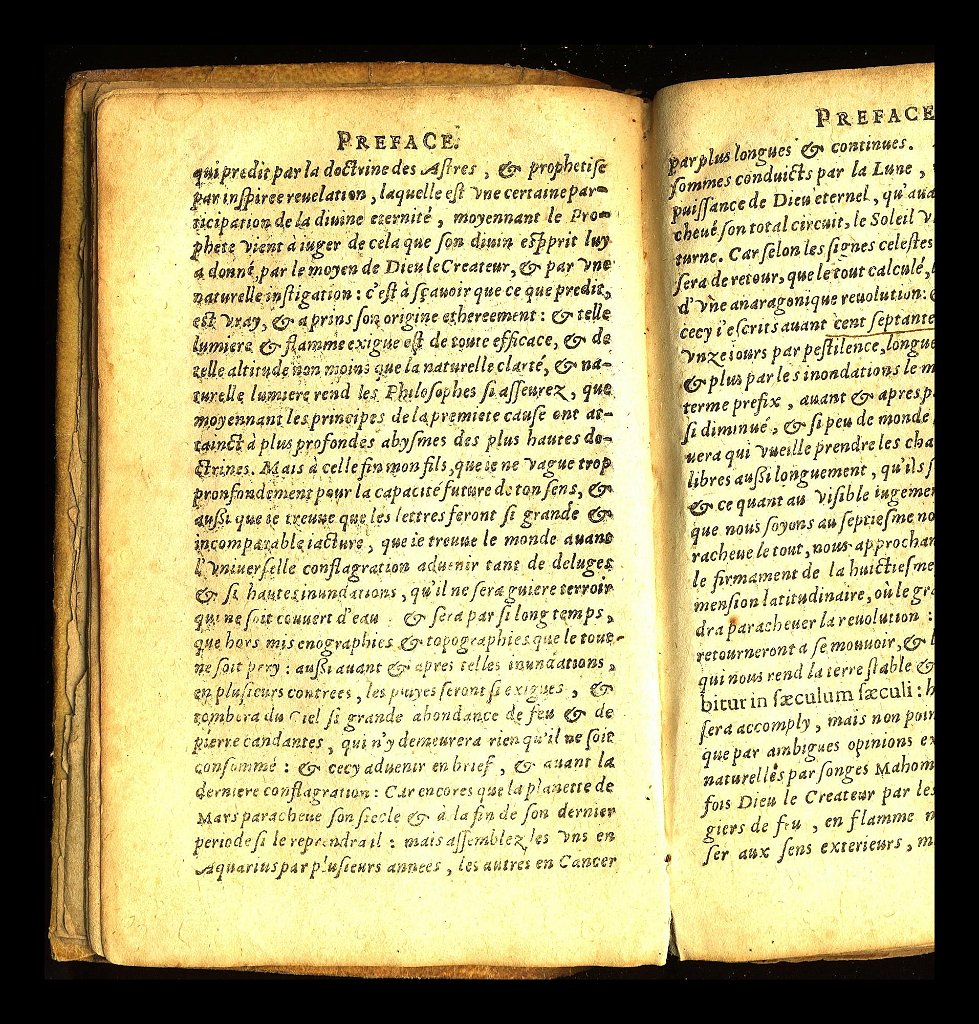 PREFACE.
qui predit par la doctrine des Astres, & prophetise
par inspiree reuelation, laquelle est vne certaine par-
ticipation de la diuine eternité, moyennant le Pro-
phete vient à iuger de cela que son diuin espprit luy
a donné par le moyen de Dieu le Createur, & par vne
naturelle instigation: c'est à sçauoir que ce que predit,
est vray, & a prins son origine ethereement: & telle
lumiere & flamme exigue est de toute efficace, & de
telle altitude non moins que la naturelle clarté, & na-
turelle lumiere rend les Philosophes si asseurez, que
moyennant les principes de la premiete cause ont at-
tainct à plus profondes abysmes des plus hautes do-
ctrines. Mais à celle fin mon fils, que ie ne vague trop
pronfondement pour la capacité future de ton sens, &
aussi que ie treuue que les lettres feront si grande &
incomparable iacture, que ie treuue le monde auant
l'vniuerselle conflagration aduenir tant de deluges
& si hautes inundations, qu'il ne sera guiere terroir
qui ne soit couuert d'eau & sera par si long temps,
que hors mis enographies & topographies que le tout
ne soit pery: aussi auant & apres telles inundations,
en plusieurs contrees, les pluyes seront si exigues, &
tombera du Ciel si grande abondance de feu & de
pierre candantes, qui n'y demeurera rien qu'il ne soit
consommé: & cecy aduenir en brief, & auant la
derniere conflagration: Car encores que la planette de
Mars paracheue son siecle & à la fin de son dernier
periode si le reprendra il: mais assemblez les vns en
Aquarius par plusieurs annees, les autres en Cancer
PREFACE
par plus longues & continues.
sommes conduicts par la Lune,
puissance de Dieu eternel, qu'aua
cheué son total circuit, le Soleil v
turne. Car selon les signes celestes
sera de retour, que le tout calculé,
d'vne anaragonique reuolution:
cecy i'escrits auant cent septante
vnze iours par pestilence, longue
& plus par les inondations le m
terme prefix, auant & apres p
si diminué, & si peu de monde
uera qui vueille prendre les cha
libres aussi longuement, qu'ils s
& ce quant au visible iugemen
que nous soyons au septiesme no
racheue le tout, nous approchan
le firmament de la huictiesme
mension latitudinaire, où le gra
dra paracheuer la reuolution:
retourneront a se mouuoir, & l
qui nous rend la terre stable &
bitur in sæculum sæculi: h
sera accomply, mais non poin
que par ambigues opinions ex
naturelles par songes Mahom
fois Dieu le Createur par les
giers de feu, en flamme m
ser aux sens exterieurs, m